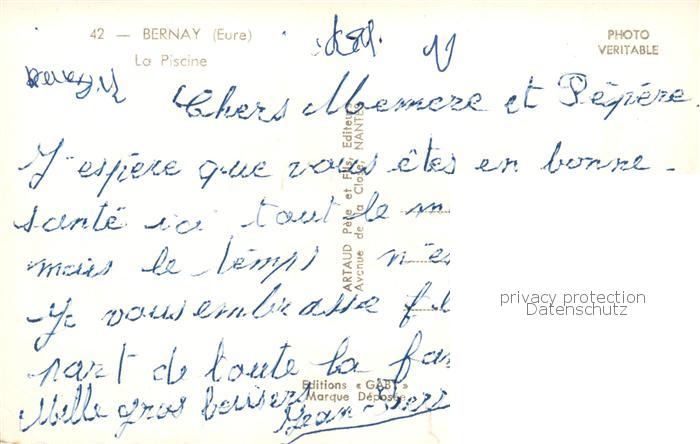 42 — BERNAY (Eure)
La Piscine
PHOTO
VERITABLE
Chers Memere et Pépére
J'espére que vous êtes en bonne
santé ici tout le m
mais le temps n'es
Je vous embrasse
part de toute la fa
Mille gros baisers
Jean-Pierr
ARTAUD Père et Fils, Editeurs
Avenue de la Close, NANTES
Editions « GABY »
Marque Déposée
privacy protection
Datenschutz